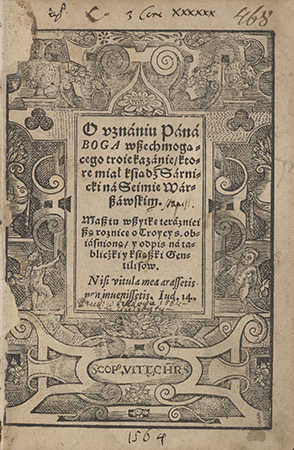 3 Cere xxxxxx
468
O vznániu Páná
BOGA wſzechmogą-
cego troie kazánie/ kto-
re miał kſiądz Sárnic-
ki ná Seimie Wár-
ſzáwſkim.
Maſz tu wſzytke teráznieị-
ſzą roznice o Troycy s. ob-
iáſnioną/ y odpis ná ta-
bliczki y kſiąſzki Gen-
tiliſow.
Niſi vitula mea araſſetis
non inueniſſetis. Iud. 14.
SCOPVS VITÆ CHRS
1564